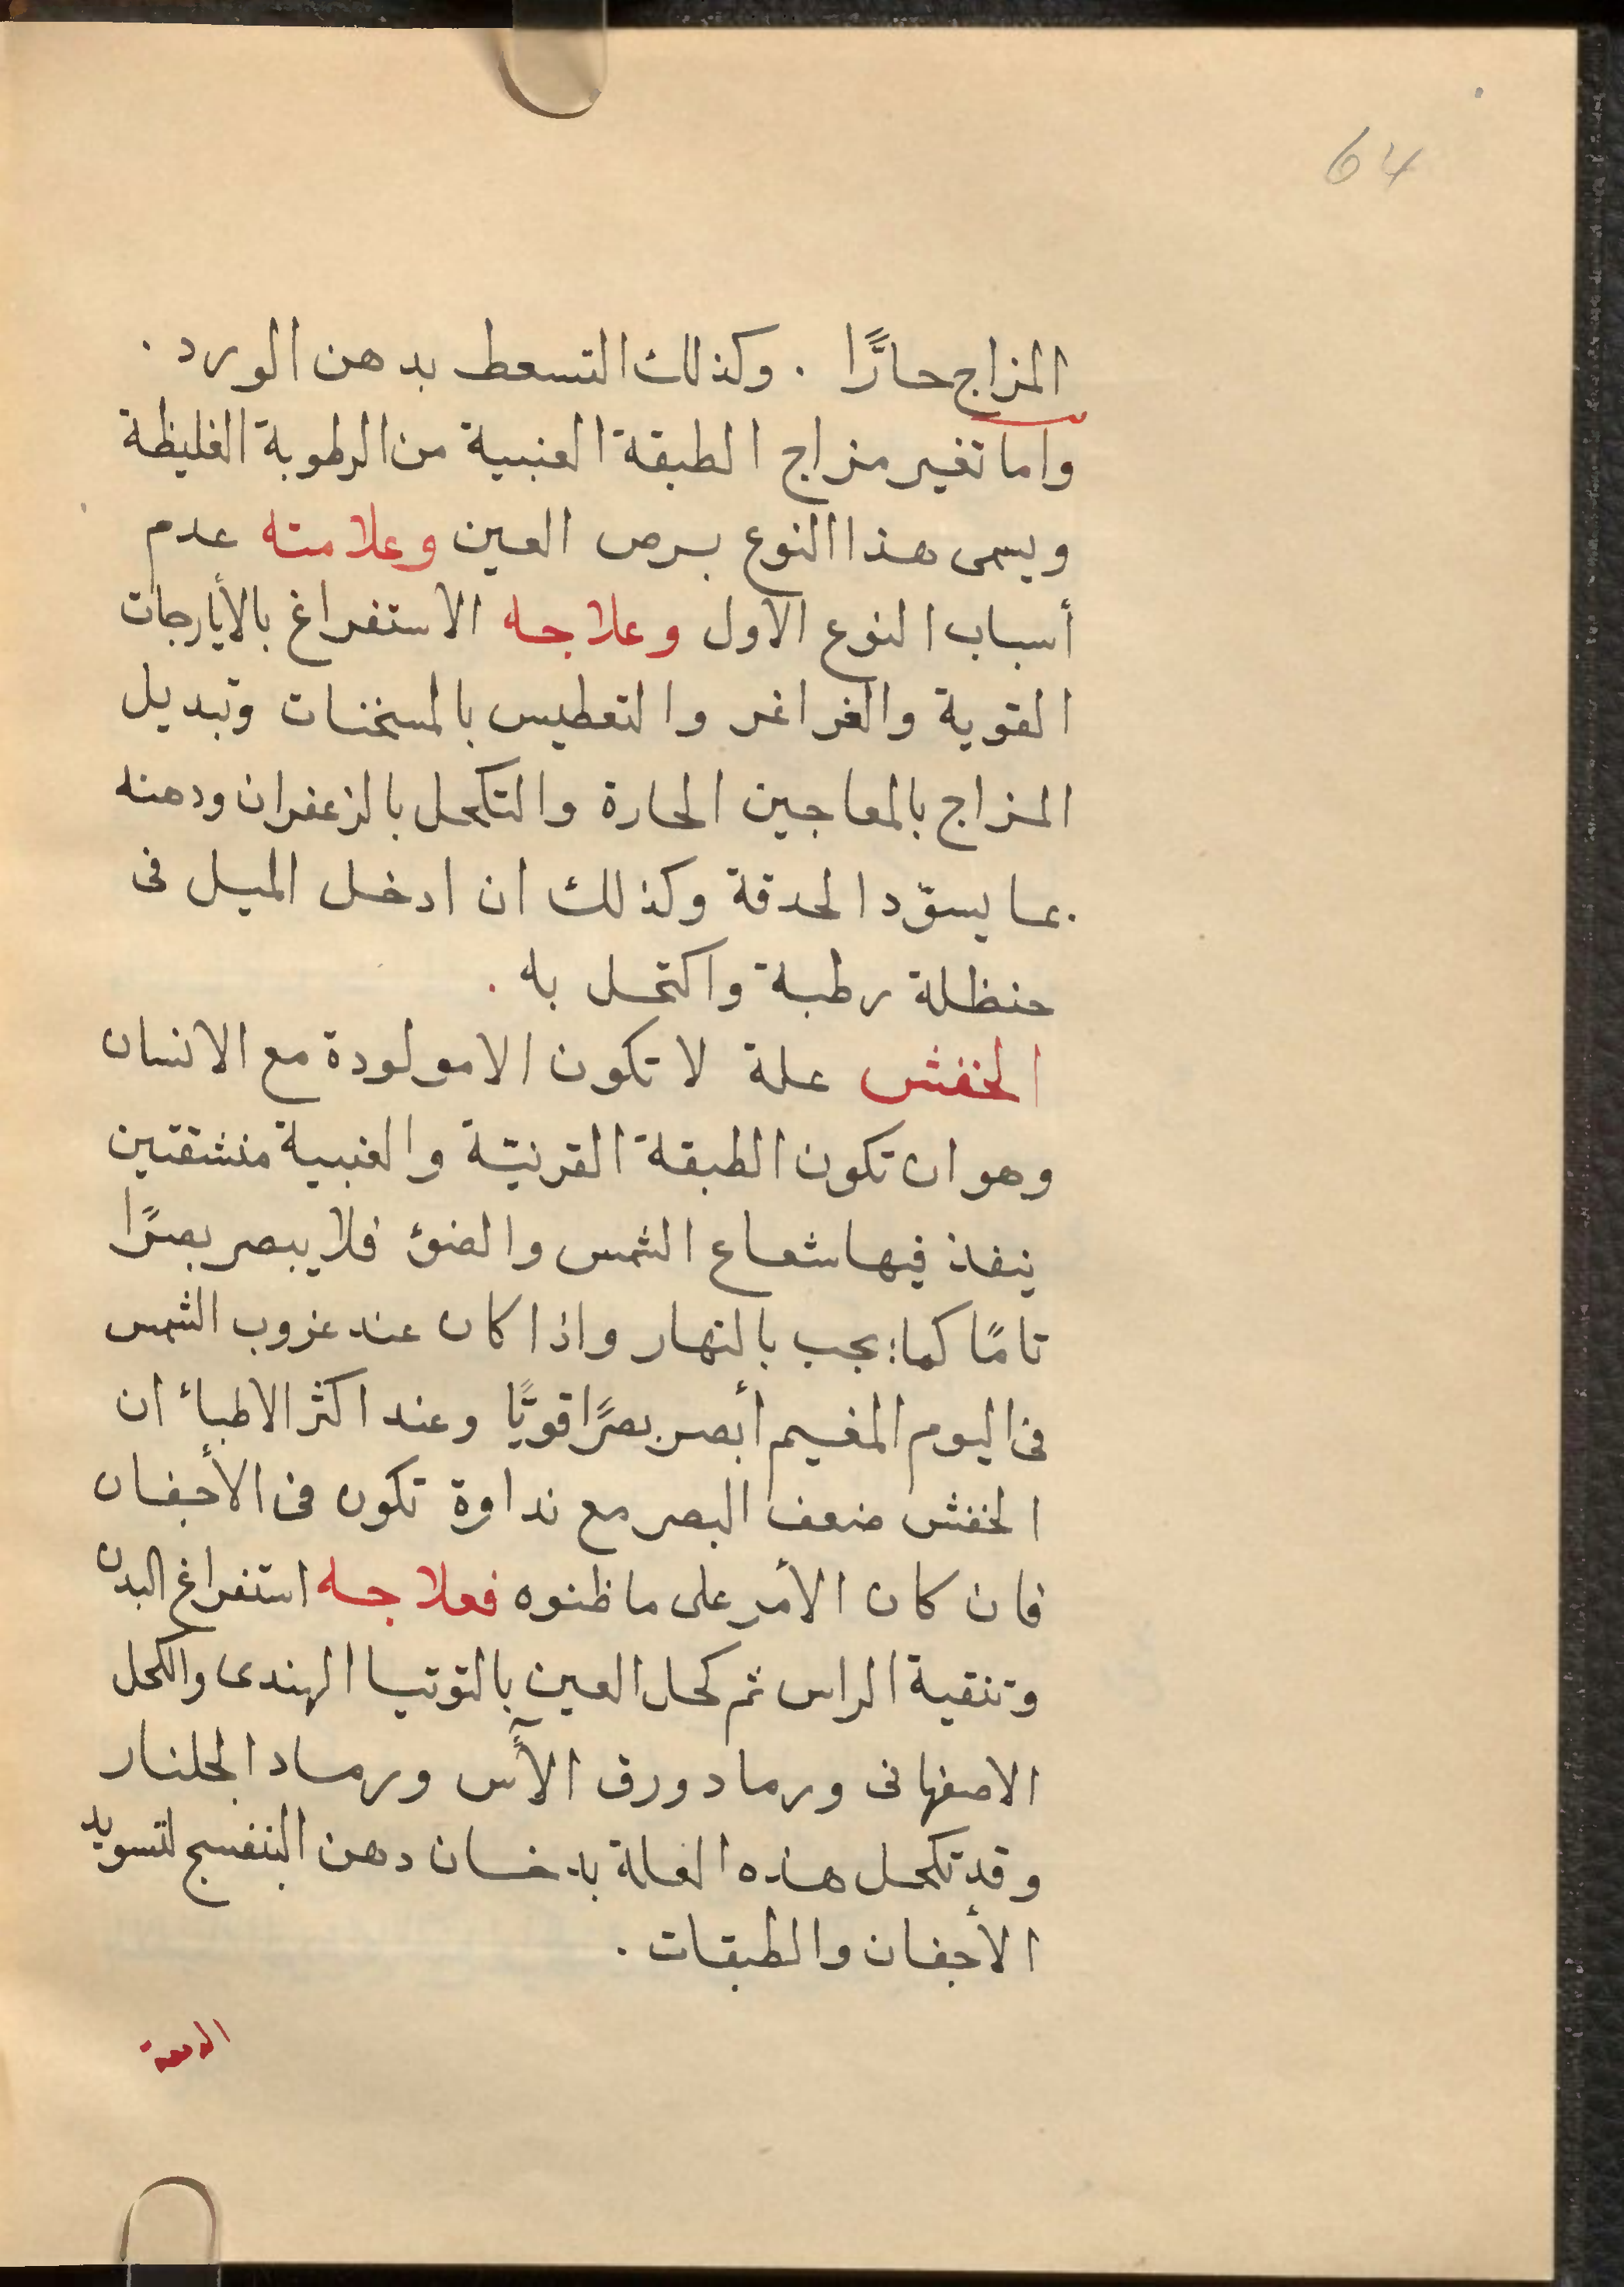 64
المزاج حارًّا . وكذلك التسعط بدهن الورد .
واما تغير مزاج الطبقة العنبية من الرطوبة الغليظة
ويسمى هذا النوع برص العين وعلامته عدم
أسباب النوع الاول وعلاجه الاستفراغ بالأيارجات
القوية والغراغر والتعطيس بالمسخنات وتبديل
المزاج بالمعاجين الحارة والتكحل بالزعفران ودهنه
مما يسوّد الحدقة وكذلك ان ادخل الميل فى
حنظلة رطبة واكتحل به .
الخفش علة لا تكون الا مولودة مع الانسان
وهو ان تكون الطبقة القرنيّة والعنبية منشقتين
ينفذ فيها شعاع الشمس والضوء فلا يبصر بصرًا
تامًا كما يجب بالنهار واذا كان عند غروب الشمس
فى اليوم المغيم أبصر بصرًا قويًّا وعند اكثر الاطباء ان
الخفش ضعف البصر مع نداوة تكون فى الأجفان
فان كان الأمر على ما ظنوه فعلاجه استفراغ البدن
وتنقية الراس ثم كحل العين بالتوتيا الهندى والكحل
الاصفهانى ورماد ورق الآس ورماد الجلنار
وقد تكحل هذه العلة بدخان دهن البنفسج لتسويد
الأجفان والطبقات .
الدمعة